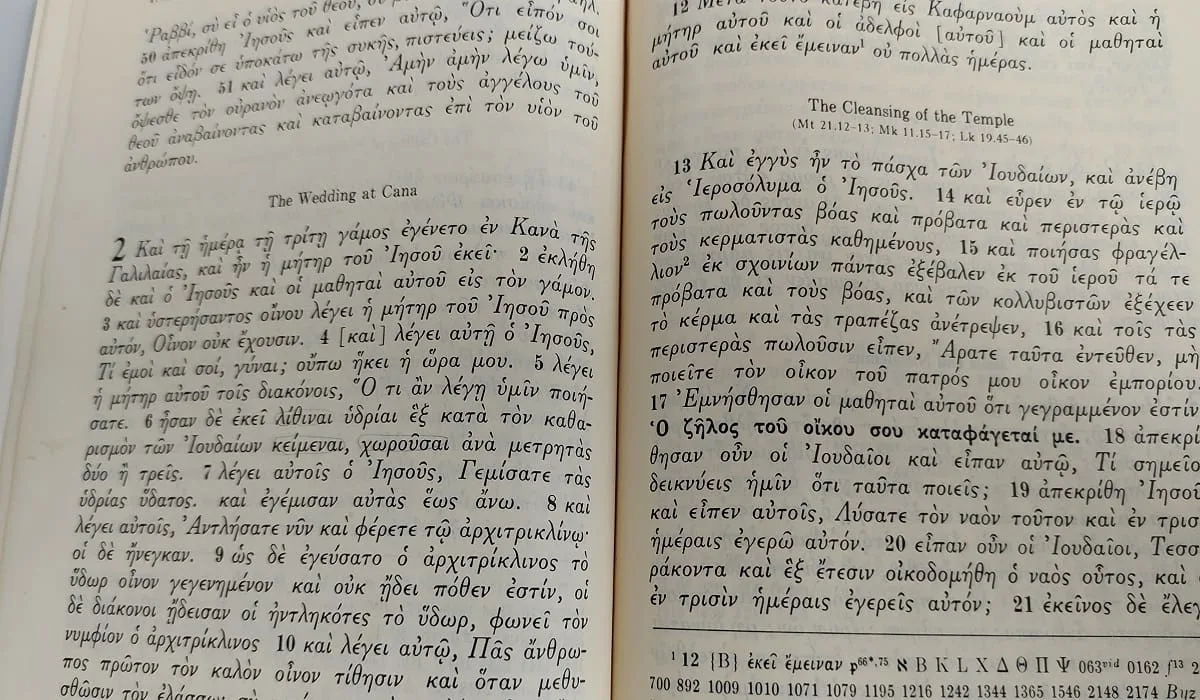 Ῥαββί, σὺ εἶ ὁ υἱὸς τοῦ θεοῦ,
50 ἀπεκρίθη Ἰησοῦς καὶ εἶπεν αὐτῷ, Ὅτι εἶπόν σοι
ὅτι εἶδόν σε ὑποκάτω τῆς συκῆς, πιστεύεις; μείζω τού-
των ὄψῃ. 51 καὶ λέγει αὐτῷ, Ἀμὴν ἀμὴν λέγω ὑμῖν,
ὄψεσθε τὸν οὐρανὸν ἀνεῳγότα καὶ τοὺς ἀγγέλους τοῦ
θεοῦ ἀναβαίνοντας καὶ καταβαίνοντας ἐπὶ τὸν υἱὸν τοῦ
ἀνθρώπου.
The Wedding at Cana
2 Καὶ τῇ ἡμέρᾳ τῇ τρίτῃ γάμος ἐγένετο ἐν Κανὰ τῆς
Γαλιλαίας, καὶ ἦν ἡ μήτηρ τοῦ Ἰησοῦ ἐκεῖ· 2 ἐκλήθη
δὲ καὶ ὁ Ἰησοῦς καὶ οἱ μαθηταὶ αὐτοῦ εἰς τὸν γάμον.
3 καὶ ὑστερήσαντος οἴνου λέγει ἡ μήτηρ τοῦ Ἰησοῦ πρὸς
αὐτόν, Οἶνον οὐκ ἔχουσιν. 4 [καὶ] λέγει αὐτῇ ὁ Ἰησοῦς,
Τί ἐμοὶ καὶ σοί, γύναι; οὔπω ἥκει ἡ ὥρα μου. 5 λέγει
ἡ μήτηρ αὐτοῦ τοῖς διακόνοις, Ὅ τι ἂν λέγῃ ὑμῖν ποιή-
σατε. 6 ἦσαν δὲ ἐκεῖ λίθιναι ὑδρίαι ἓξ κατὰ τὸν καθα-
ρισμὸν τῶν Ἰουδαίων κείμεναι, χωροῦσαι ἀνὰ μετρητὰς
δύο ἢ τρεῖς. 7 λέγει αὐτοῖς ὁ Ἰησοῦς, Γεμίσατε τὰς
ὑδρίας ὕδατος. καὶ ἐγέμισαν αὐτὰς ἕως ἄνω. 8 καὶ
λέγει αὐτοῖς, Ἀντλήσατε νῦν καὶ φέρετε τῷ ἀρχιτρικλίνῳ·
οἱ δὲ ἤνεγκαν. 9 ὡς δὲ ἐγεύσατο ὁ ἀρχιτρίκλινος τὸ
ὕδωρ οἶνον γεγενημένον καὶ οὐκ ᾔδει πόθεν ἐστίν, οἱ
δὲ διάκονοι ᾔδεισαν οἱ ἠντληκότες τὸ ὕδωρ, φωνεῖ τὸν
νυμφίον ὁ ἀρχιτρίκλινος 10 καὶ λέγει αὐτῷ, Πᾶς ἄνθρω-
πος πρῶτον τὸν καλὸν οἶνον τίθησιν καὶ ὅταν μεθυ-
σθῶσιν τὸν ἐλάσσω
12 Μετὰ τοῦτο κατέβη εἰς Καφαρναοὺμ αὐτὸς καὶ ἡ
μήτηρ αὐτοῦ καὶ οἱ ἀδελφοὶ [αὐτοῦ] καὶ οἱ μαθηταὶ
αὐτοῦ καὶ ἐκεῖ ἔμειναν¹ οὐ πολλὰς ἡμέρας.
The Cleansing of the Temple
(Mt 21.12–13; Mk 11.15–17; Lk 19.45–46)
13 Καὶ ἐγγὺς ἦν τὸ πάσχα τῶν Ἰουδαίων, καὶ ἀνέβη
εἰς Ἱεροσόλυμα ὁ Ἰησοῦς. 14 καὶ εὗρεν ἐν τῷ ἱερῷ
τοὺς πωλοῦντας βόας καὶ πρόβατα καὶ περιστερὰς καὶ
τοὺς κερματιστὰς καθημένους, 15 καὶ ποιήσας φραγέλ-
λιον² ἐκ σχοινίων πάντας ἐξέβαλεν ἐκ τοῦ ἱεροῦ τά τε
πρόβατα καὶ τοὺς βόας, καὶ τῶν κολλυβιστῶν ἐξέχεεν
τὸ κέρμα καὶ τὰς τραπέζας ἀνέτρεψεν, 16 καὶ τοῖς τὰς
περιστερὰς πωλοῦσιν εἶπεν, Ἄρατε ταῦτα ἐντεῦθεν, μὴ
ποιεῖτε τὸν οἶκον τοῦ πατρός μου οἶκον ἐμπορίου
17 Ἐμνήσθησαν οἱ μαθηταὶ αὐτοῦ ὅτι γεγραμμένον ἐστίν
Ὁ ζῆλος τοῦ οἴκου σου καταφάγεταί με. 18 ἀπεκρί
θησαν οὖν οἱ Ἰουδαῖοι καὶ εἶπαν αὐτῷ, Τί σημεῖο
δεικνύεις ἡμῖν ὅτι ταῦτα ποιεῖς; 19 ἀπεκρίθη Ἰησοῦ
καὶ εἶπεν αὐτοῖς, Λύσατε τὸν ναὸν τοῦτον καὶ ἐν τρισ
ἡμέραις ἐγερῶ αὐτόν. 20 εἶπαν οὖν οἱ Ἰουδαῖοι, Τεσσ
ράκοντα καὶ ἓξ ἔτεσιν οἰκοδομήθη ὁ ναὸς οὗτος, καὶ
ἐν τρισὶν ἡμέραις ἐγερεῖς αὐτόν; 21 ἐκεῖνος δὲ ἔλεγ
¹ 12 {B} ἐκεῖ ἔμειναν p⁶⁶*,⁷⁵ ℵ B K L X Δ Θ Π Ψ 063ᵛⁱᵈ 0162 f¹³ 2
700 892 1009 1010 1071 1079 1195 1216 1242 1344 1365 1546 2148 2174 Byz